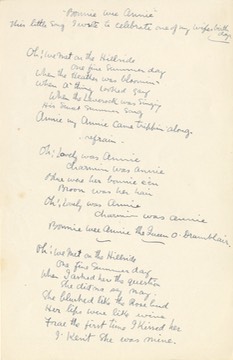 "Bonnie wee Annie"
This little song I wrote to celebrate one of my wifes birth
days
Oh! We Met on the Hillside
One fine Summer day
When the heather was bloomin
When a' thing looked gay
When the Laverock was singing
His sweet Summer Song
Annie my Annie came trippin along.
-refrain-
Oh! Lovely was Annie
charmin was Annie
Blue was her bonnie een
Broon was her hair
Oh! Lovely was Annie
charmin was Annie
Bonnie wee Annie the Queen O.
Oh! We Met on the Hillside
One fine Summer day
When I asked her the question
She did na say nay
She blushed like the Rose bud
Her lips were like wine
Frae the first time I kissed her
I Kent She was mine.